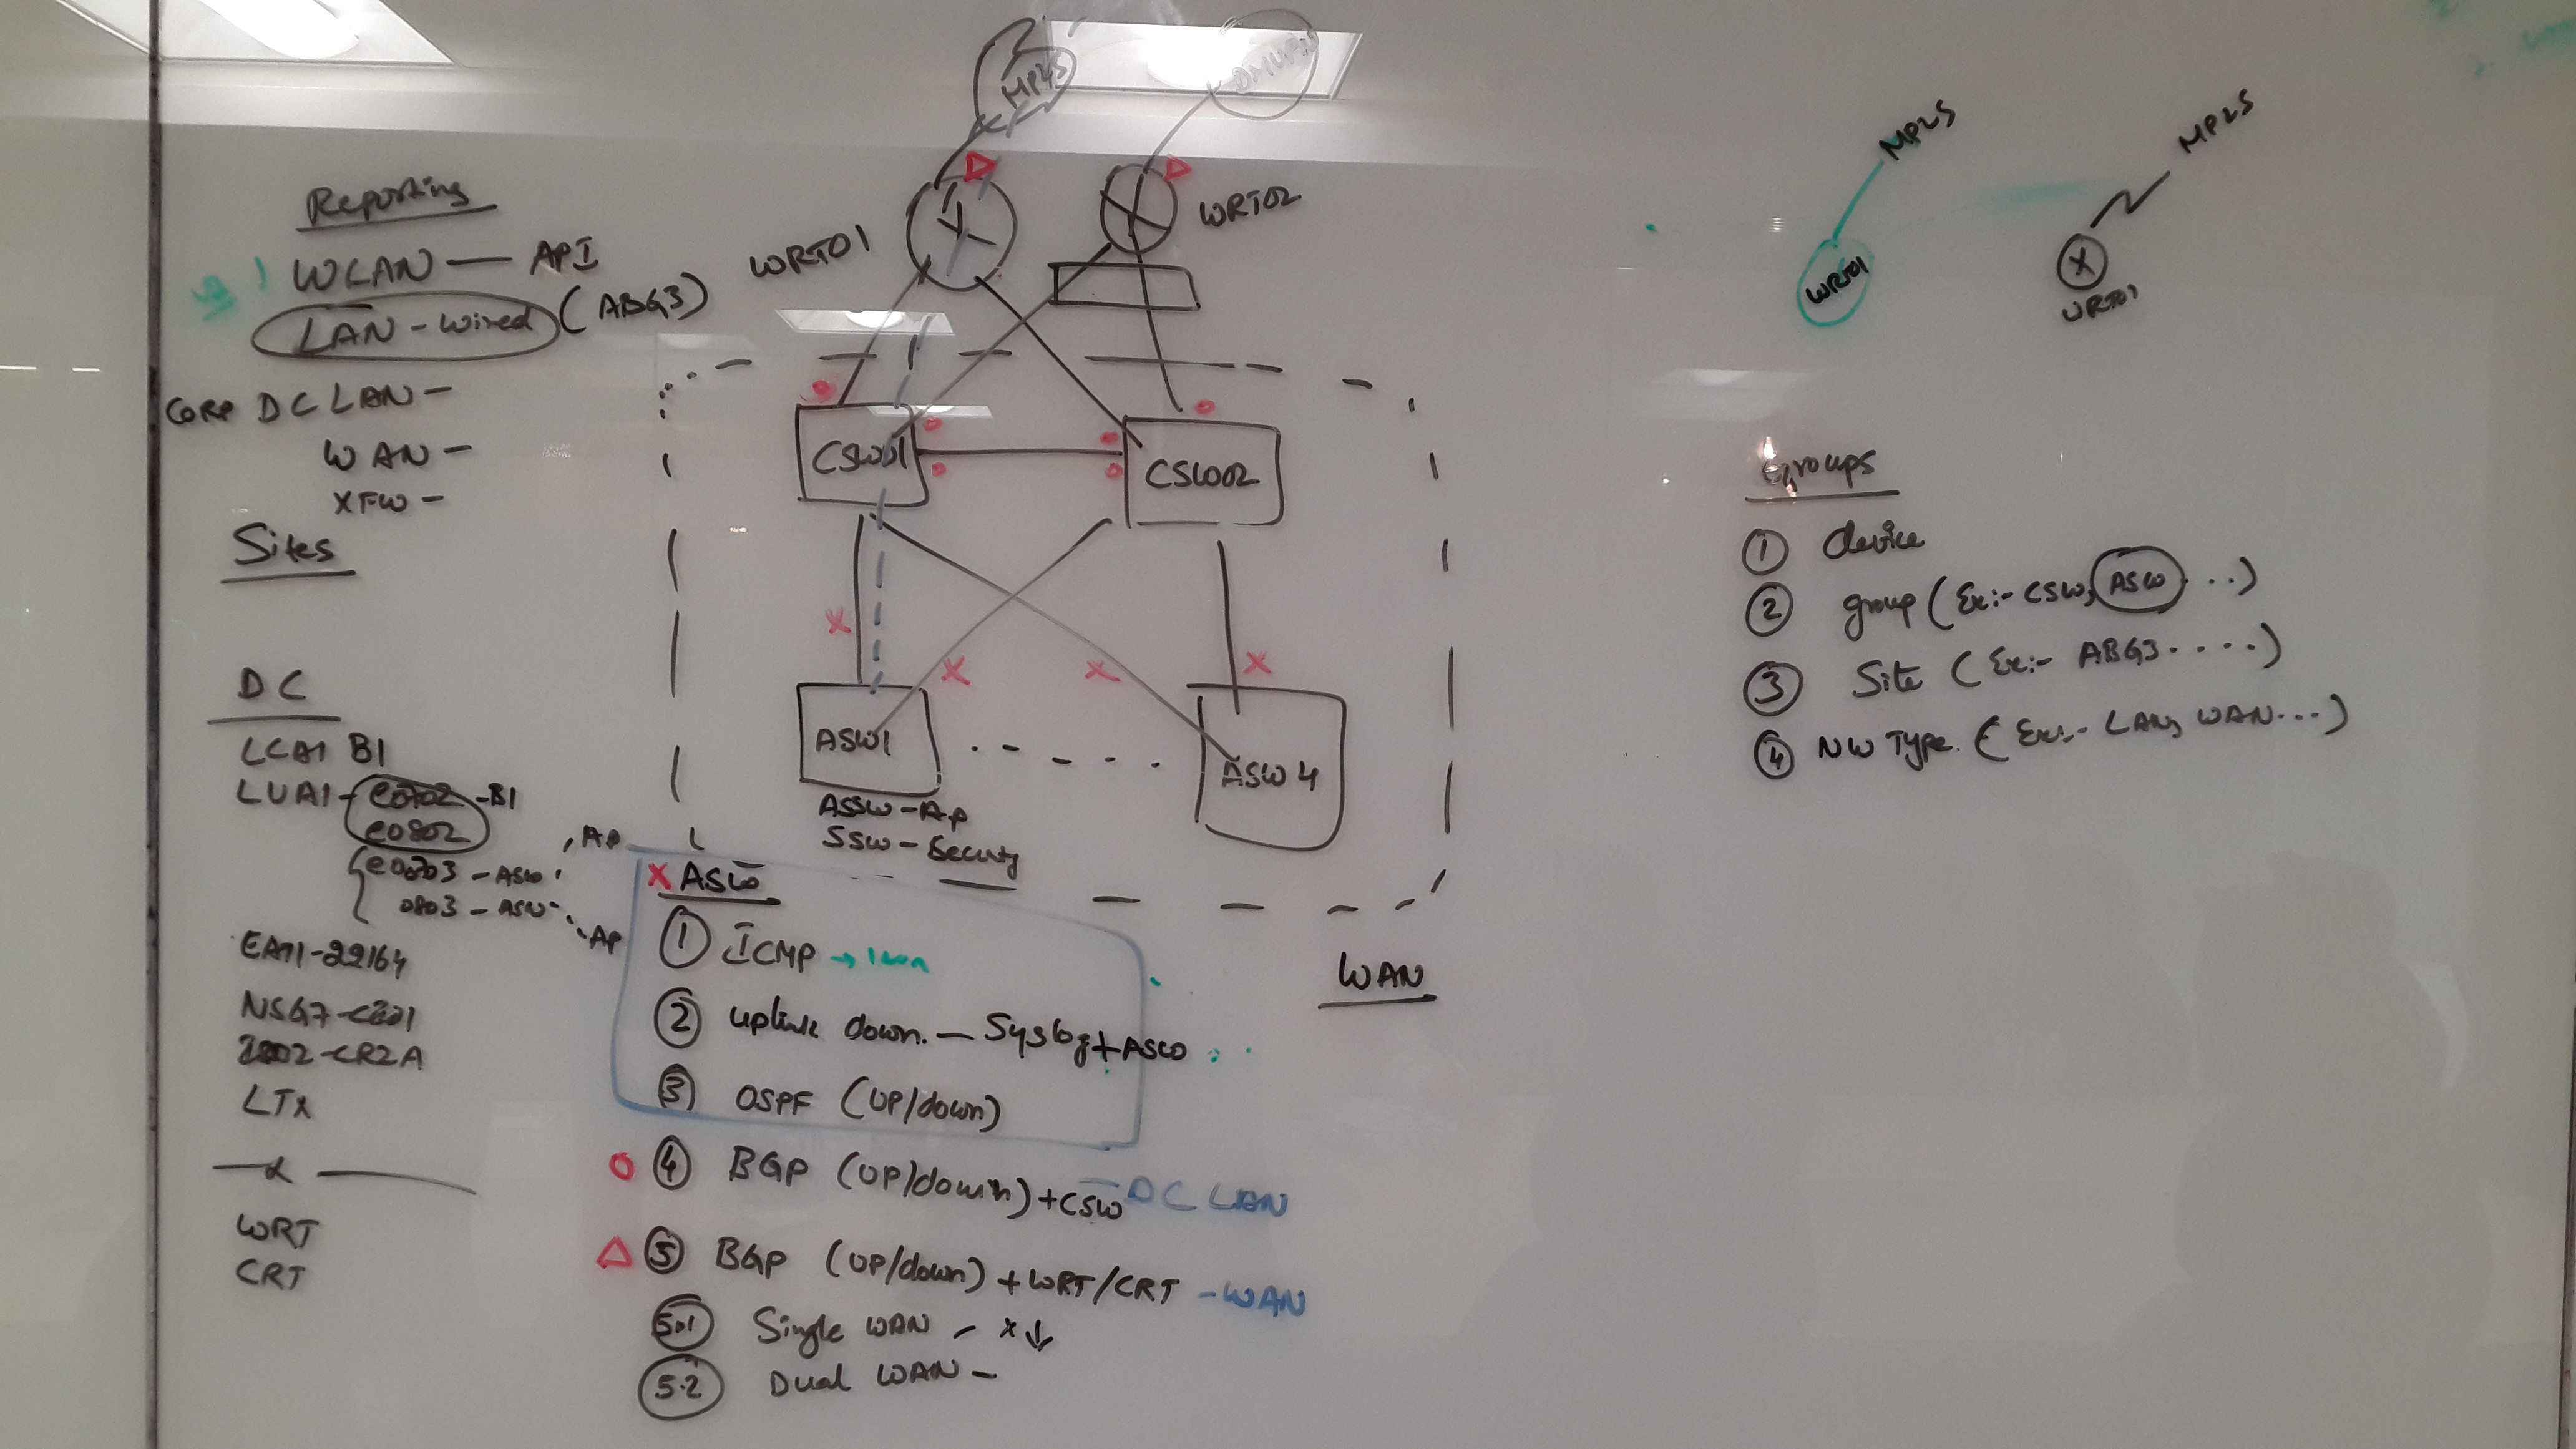 Reporting
WLAN — API
LAN - Wired (ABG3)
CORP DC LAN -
WAN -
XFW -
Sites
DC
LCA1 B1
LUA1 - -B1
E0802
- ASW
0803 - ASW
AP
AP
EA11-22164
LTX
WRT
CRT
MPLS
WRT01
WRT02
CSW01
CSW02
ASW1
ASW 4
ASSW - AP
SSW - Security
WAN
X ASW
① ICMP →
② uplink down. — Syslog + ASW
③ OSPF (UP/down)
④ BGP (UP/down) + CSW - DC LAN
⑤ BGP (UP/down) + WRT/CRT - WAN
5.1 Single WAN - x ↓
5.2 Dual WAN -
MPLS
WRT01
MPLS
X
WRT01
Groups
① device
② group (Ex:- CSW, ASW ...)
③ Site (Ex:- ABG3 .....)
④ NW Type. (Ex:- LAN, WAN ...)